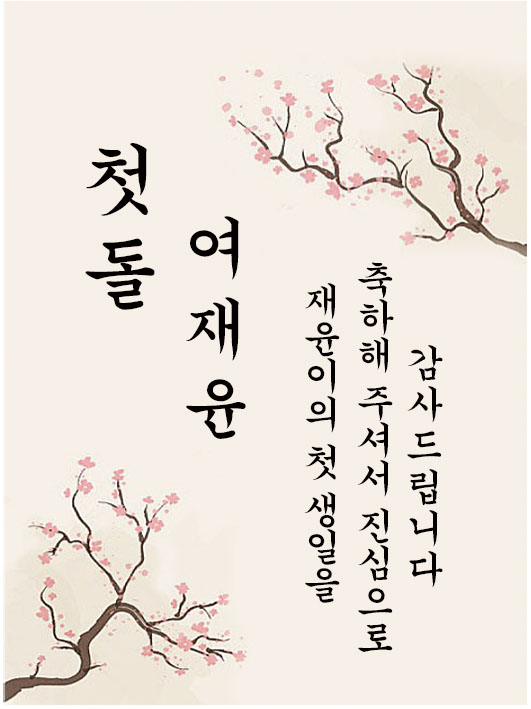 첫돌
여재윤
재윤이의 첫 생일을
축하해 주셔서 진심으로
감사드립니다